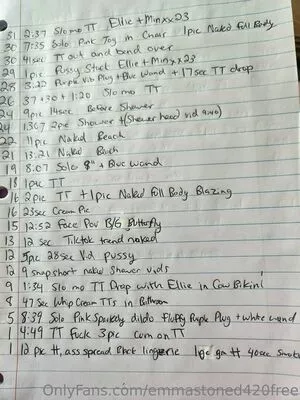 31 2:37 Slo mo TT Ellie + Minxx23
30 7:35 Solo Pink Toy in Chair 1pic Naked Full Body
30 41sec TT out and bend over
29 1pic Pussy Shot Ellie + Minxx23
28 8:22 Purple Vib Plug + Blue Wand + 17sec TT drop
26 37+30+1:20 Slo mo TT
24 9pic 14sec Before Shower
24 1307 2pic Shower + (Shower head vid 9:40)
22 11pic Naked Beach
21 13:21 Naked Beach
19 8:07 Solo 8" + Blue wand
18 1pic TT
16 2pic TT + 1pic Naked Full Body Blazing
16 23sec Cream Pie
15 12:52 Face Pov B/G Butterfly
13 12 sec Tiktok trend naked
12 5pic 28sec Vid pussy
12 9 snap short naked Shower vids
9 1:34 Slo mo TT Drop with Ellie in Cow Bikini
8 47sec Whip Cream TTs in Bathroom
5 8:39 Solo Pink Sparkely dildo Fluffy Purple Plug + white wand
1 4:49 TT Fuck 3pic cum on TT
1 12 pic tt, ass spread Black lingerie 40sec
OnlyFans.com/emmastoned420free